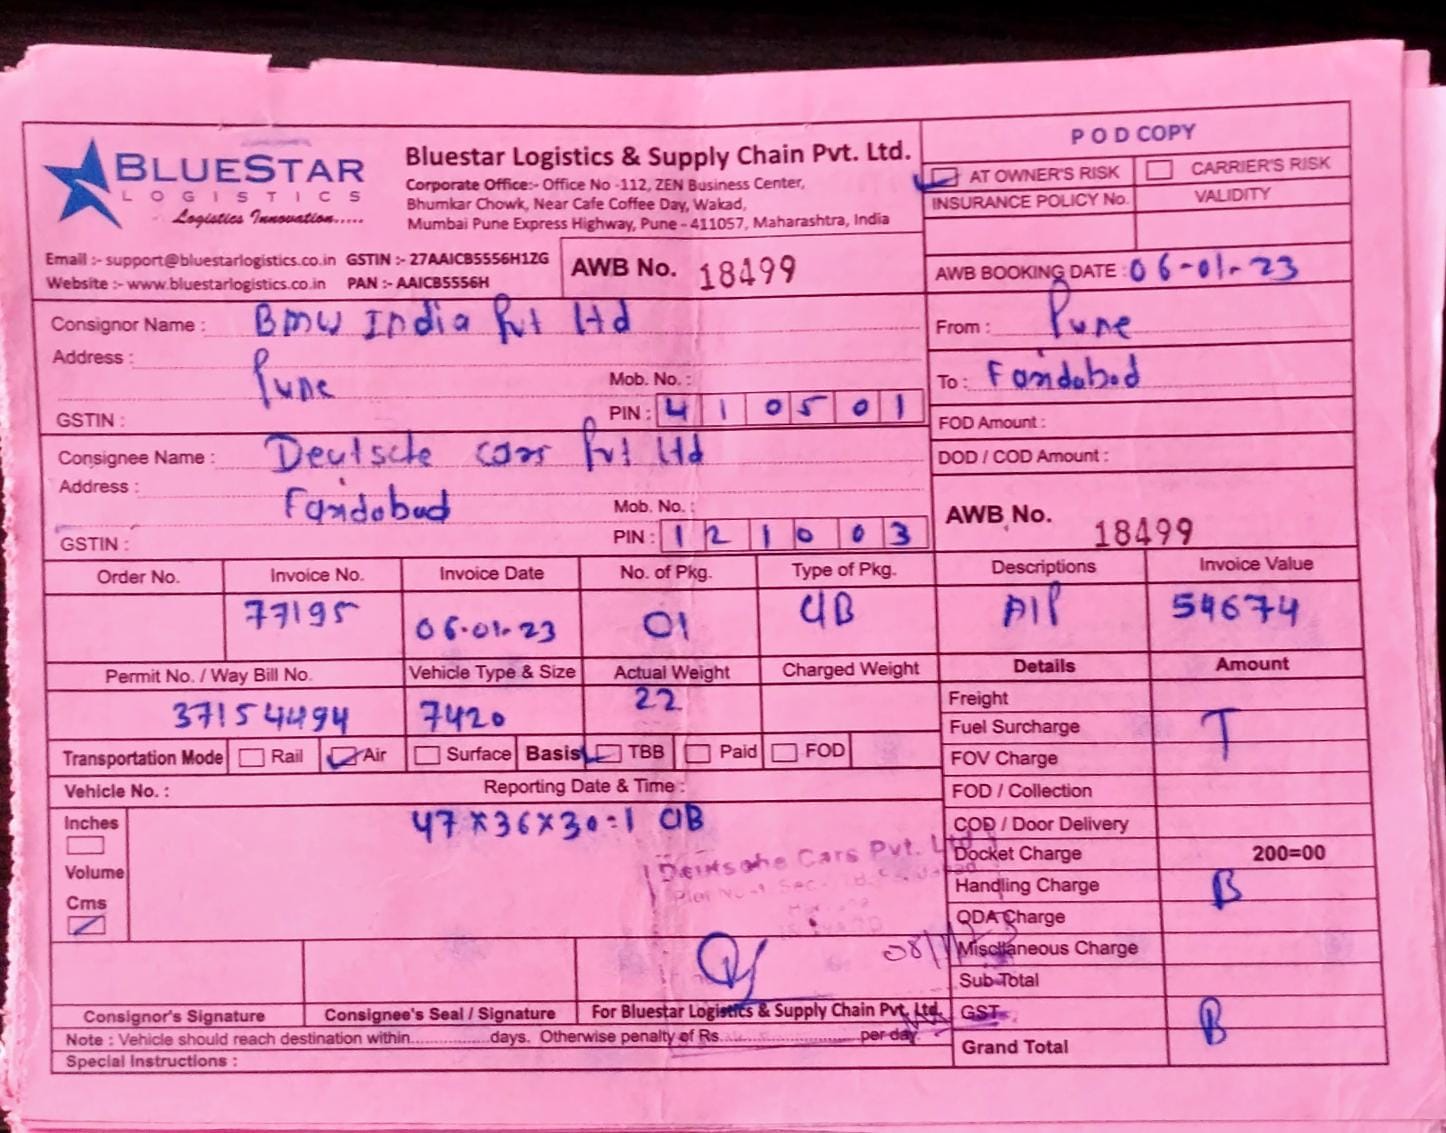 BLUESTAR
LOGISTICS
Logistics Innovation.....
Bluestar Logistics & Supply Chain Pvt. Ltd.
Corporate Office:- Office No -112, ZEN Business Center,
Bhumkar Chowk, Near Cafe Coffee Day, Wakad,
Mumbai Pune Express Highway, Pune - 411057, Maharashtra, India
POD COPY
AT OWNER'S RISK CARRIER'S RISK
INSURANCE POLICY No. VALIDITY
Email :- support@bluestarlogistics.co.in GSTIN :- 27AAICB5556H1ZG
Website :- www.bluestarlogistics.co.in PAN :- AAICB5556H
AWB No. 18499
AWB BOOKING DATE : 06-01-23
Consignor Name : BMW India Pvt Ltd
From : Pune
Address : Pune
Mob. No. :
To : Faridabad
GSTIN : PIN : 410501
FOD Amount :
Consignee Name : Deutsche cars Pvt Ltd
DOD / COD Amount :
Address : Faridabad
Mob. No. :
AWB No. 18499
GSTIN : PIN : 121003
Order No. Invoice No. Invoice Date No. of Pkg. Type of Pkg. Descriptions Invoice Value
77195 06.01.23 01 CIB AIP 54674
Permit No. / Way Bill No. Vehicle Type & Size Actual Weight Charged Weight Details Amount
37154494 7420 22
Freight
Fuel Surcharge T
Transportation Mode Rail Air Surface Basis TBB Paid FOD
FOV Charge
Vehicle No. : Reporting Date & Time :
FOD / Collection
Inches 47x36x30=1 CIB
COD / Door Delivery
Volume
Deutsche Cars Pvt. Ltd.
Docket Charge 200=00
Cms
Handling Charge B
QDA Charge
Miscllaneous Charge
Sub Total
Consignor's Signature Consignee's Seal / Signature For Bluestar Logistics & Supply Chain Pvt. Ltd.
GST B
Note : Vehicle should reach destination within...............days. Otherwise penalty of Rs...........................per day.
Grand Total
Special Instructions :